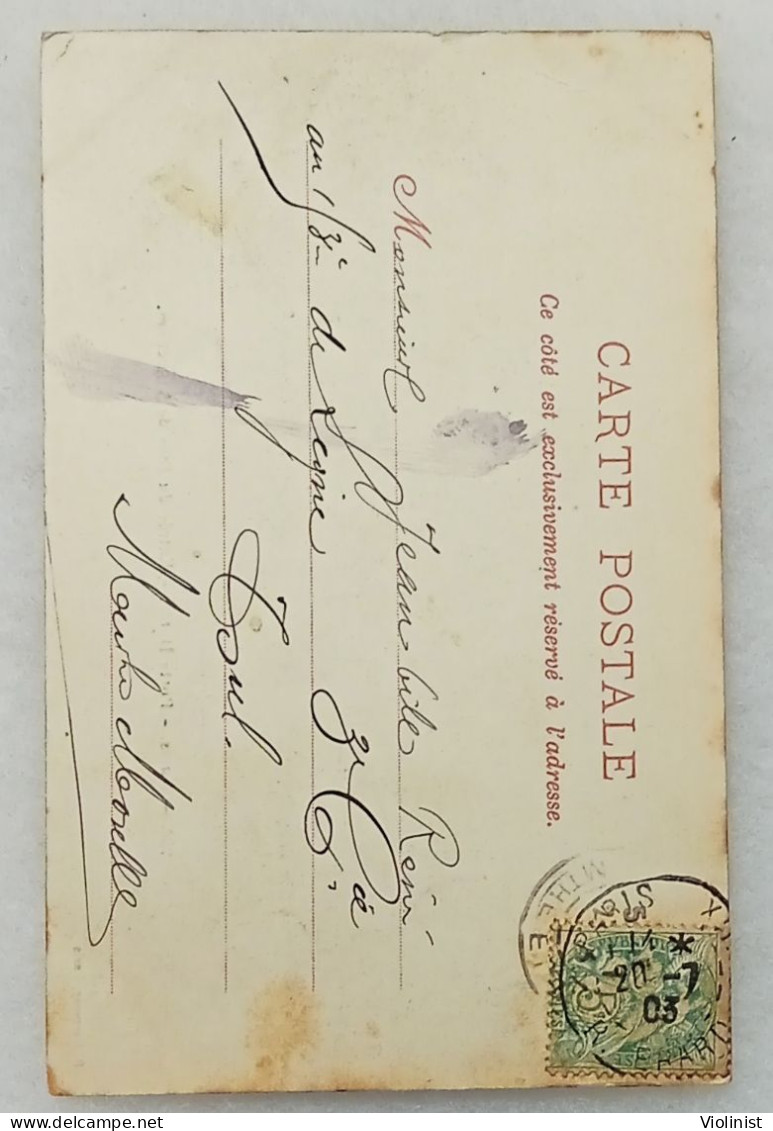 CARTE POSTALE
Ce côté est exclusivement réservé à l'adresse.
Monsieur Jean René
au de Ligne 3e Cie
Toul
Meurthe Moselle
20 -7
03
Violinist
delcampe.net